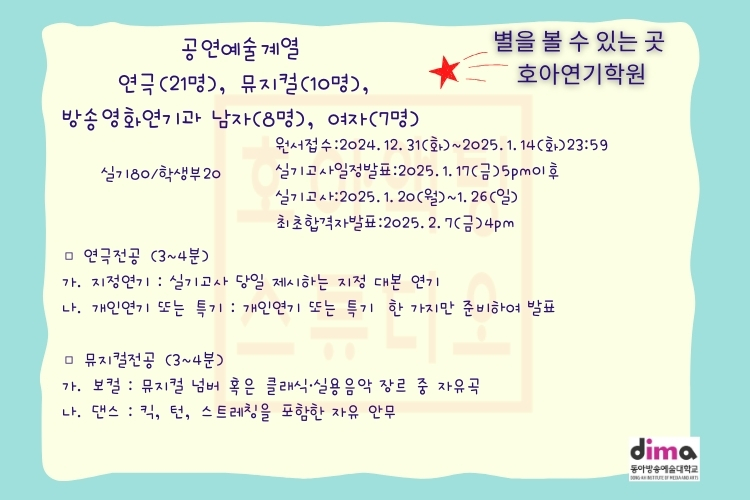 공연예술계열
연극(21명), 뮤지컬(10명),
방송영화연기과 남자(8명), 여자(7명)
별을 볼 수 있는 곳
호아연기학원
실기80/학생부20
원서접수:2024.12.31(화)~2025.1.14(화)23:59
실기고사일정발표:2025.1.17(금)5pm이후
실기고사:2025.1.20(월)~1.26(일)
최초합격자발표:2025.2.7(금)4pm
□ 연극전공 (3~4분)
가. 지정연기 : 실기고사 당일 제시하는 지정 대본 연기
나. 개인연기 또는 특기 : 개인연기 또는 특기 한 가지만 준비하여 발표
□ 뮤지컬전공 (3~4분)
가. 보컬 : 뮤지컬 넘버 혹은 클래식·실용음악 장르 중 자유곡
나. 댄스 : 킥, 턴, 스트레칭을 포함한 자유 안무
호아액팅
스튜디오
dima
동아방송예술대학교
DONG-AH INSTITUTE OF MEDIA AND ARTS